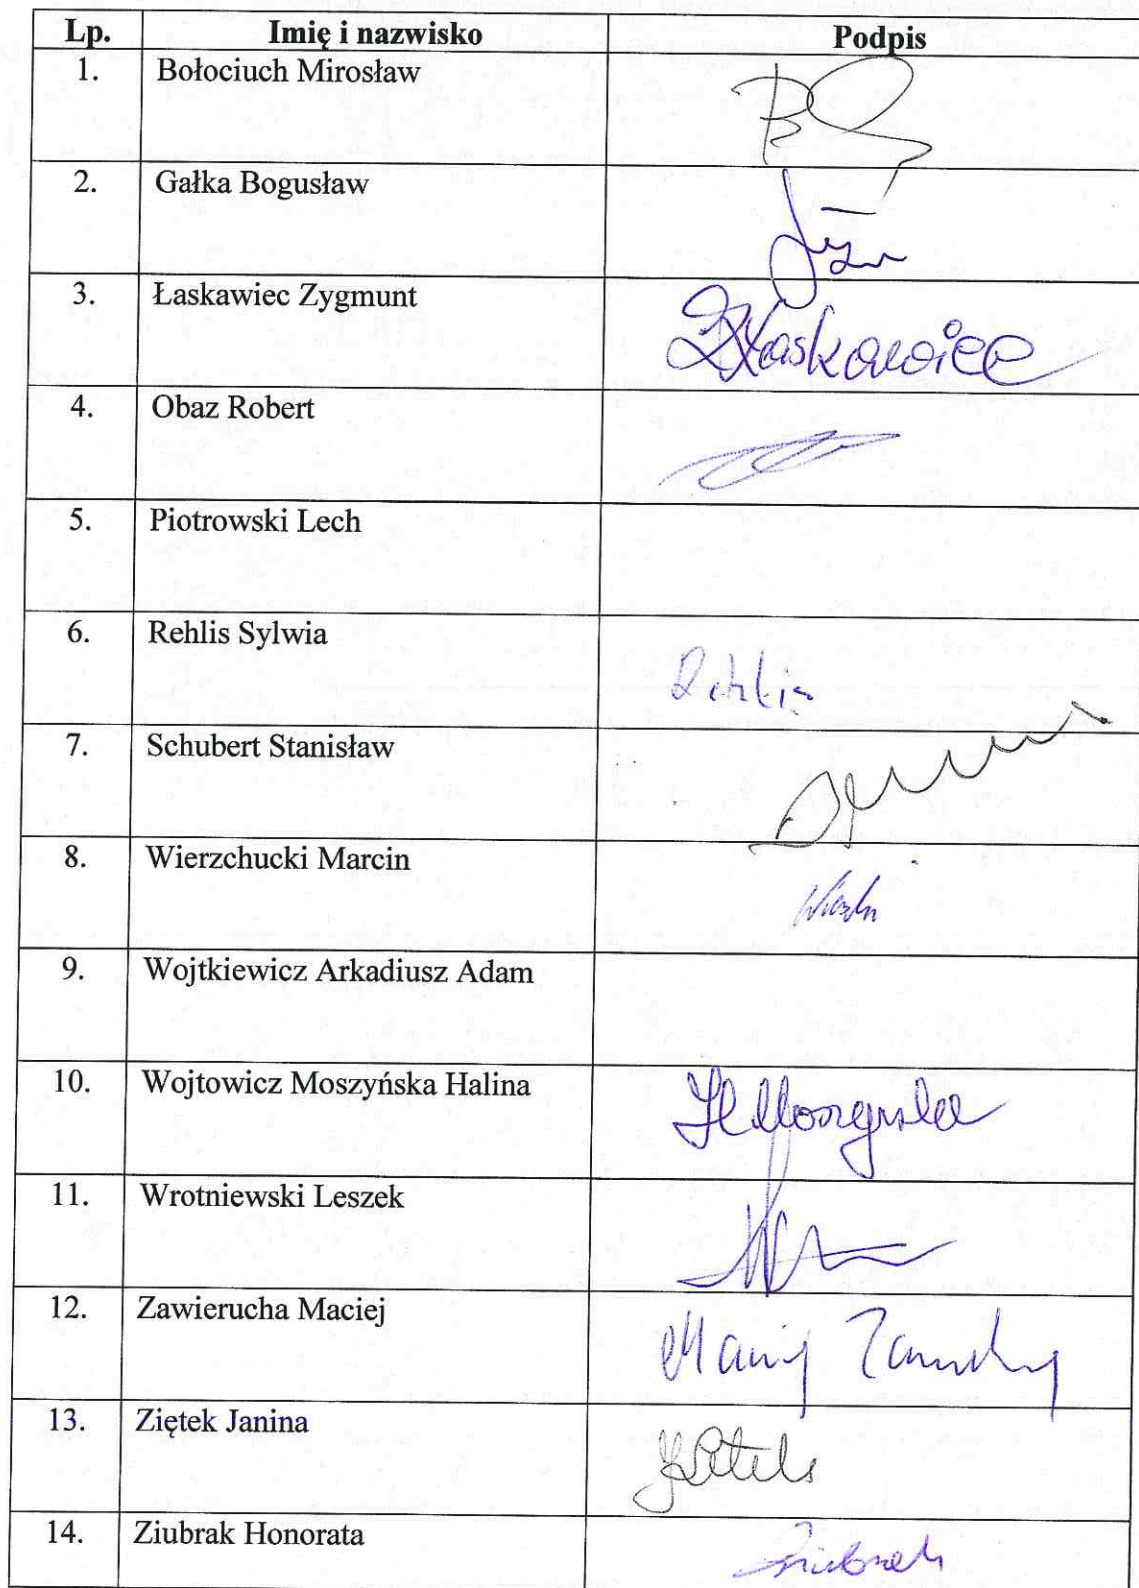 Lp. Imię i nazwisko Podpis
1. Bołociuch Mirosław
2. Gałka Bogusław
3. Łaskawiec Zygmunt Z Łaskawiec
4. Obaz Robert
5. Piotrowski Lech
6. Rehlis Sylwia Rehlis
7. Schubert Stanisław
8. Wierzchucki Marcin
9. Wojtkiewicz Arkadiusz Adam
10. Wojtowicz Moszyńska Halina H Moszyńska
11. Wrotniewski Leszek
12. Zawierucha Maciej Maciej
13. Ziętek Janina
14. Ziubrak Honorata Ziubrak